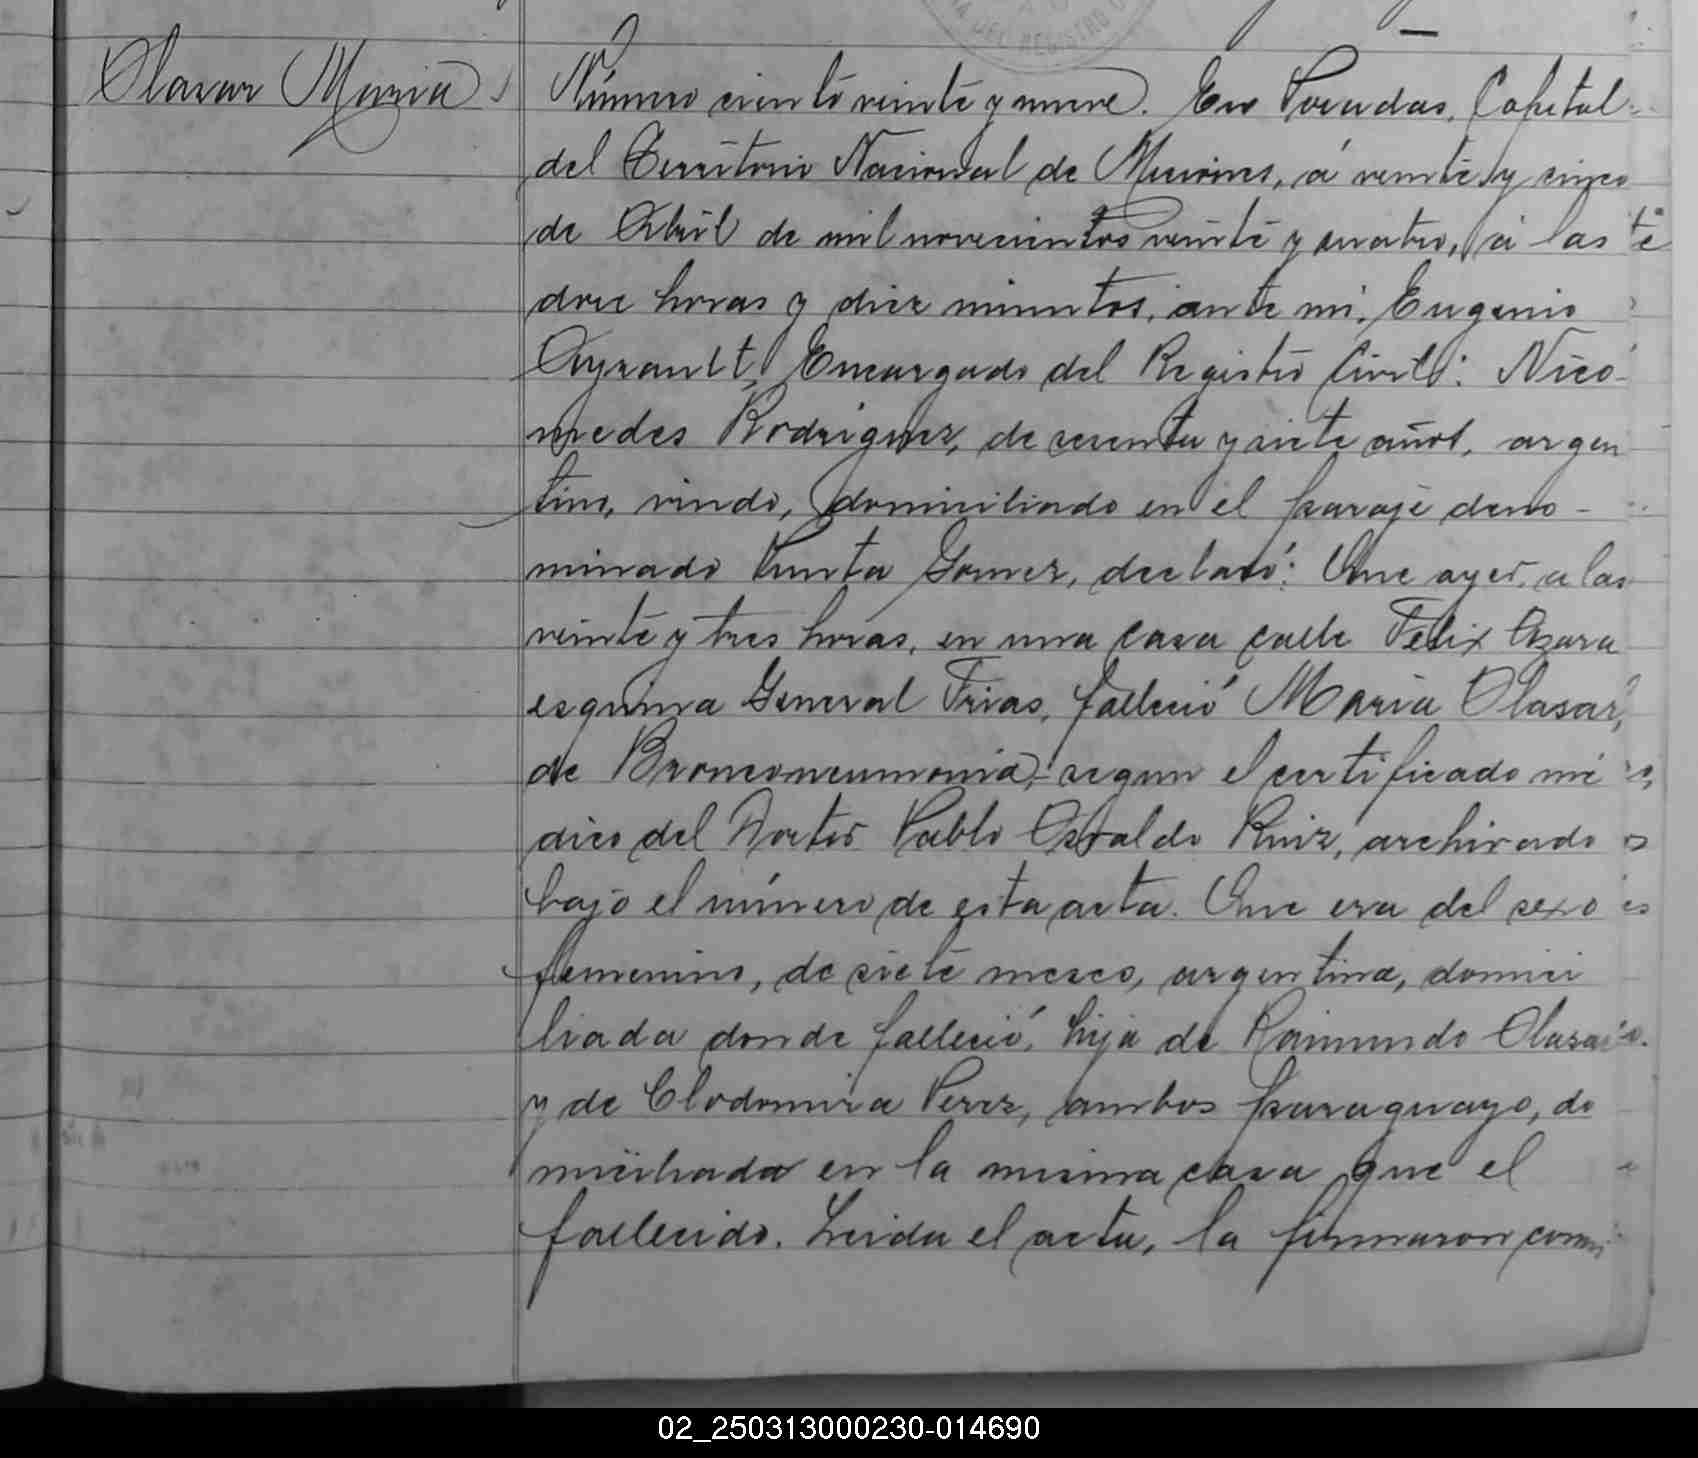 DEL REGISTRO
Olasar Maria
Número ciento veinte y nueve. En Posadas, Capital
del Territorio Nacional de Misiones, á veinte y cinco
de Abril de mil novecientos veinte y cuatro, á las
doce horas y diez minutos, ante mi, Eugenio
Ayrault, Encargado del Registro Civil: Nico-
medes Rodriguez, de sesenta y siete años, argen
tino, viudo, domiciliado en el paraje deno-
minado Punta Gomez, declaró: Que ayer, a las
veinte y tres horas, en una casa calle Felix Azara
esquina General Frias, falleció Maria Olasar,
de Bronconeumonia, segun el certificado mé
dico del Doctor Pablo Osvaldo Ruiz, archivado
bajo el número de esta acta. Que era del sexo
femenino, de siete meses, argentina, domici
liada donde falleció, hija de Raimundo Olasar
y de Clodomira Perez, ambos paraguayo, do
miciliada en la misma casa que el
fallecido. Leida el acta, la firmaron conmi
02_250313000230-014690